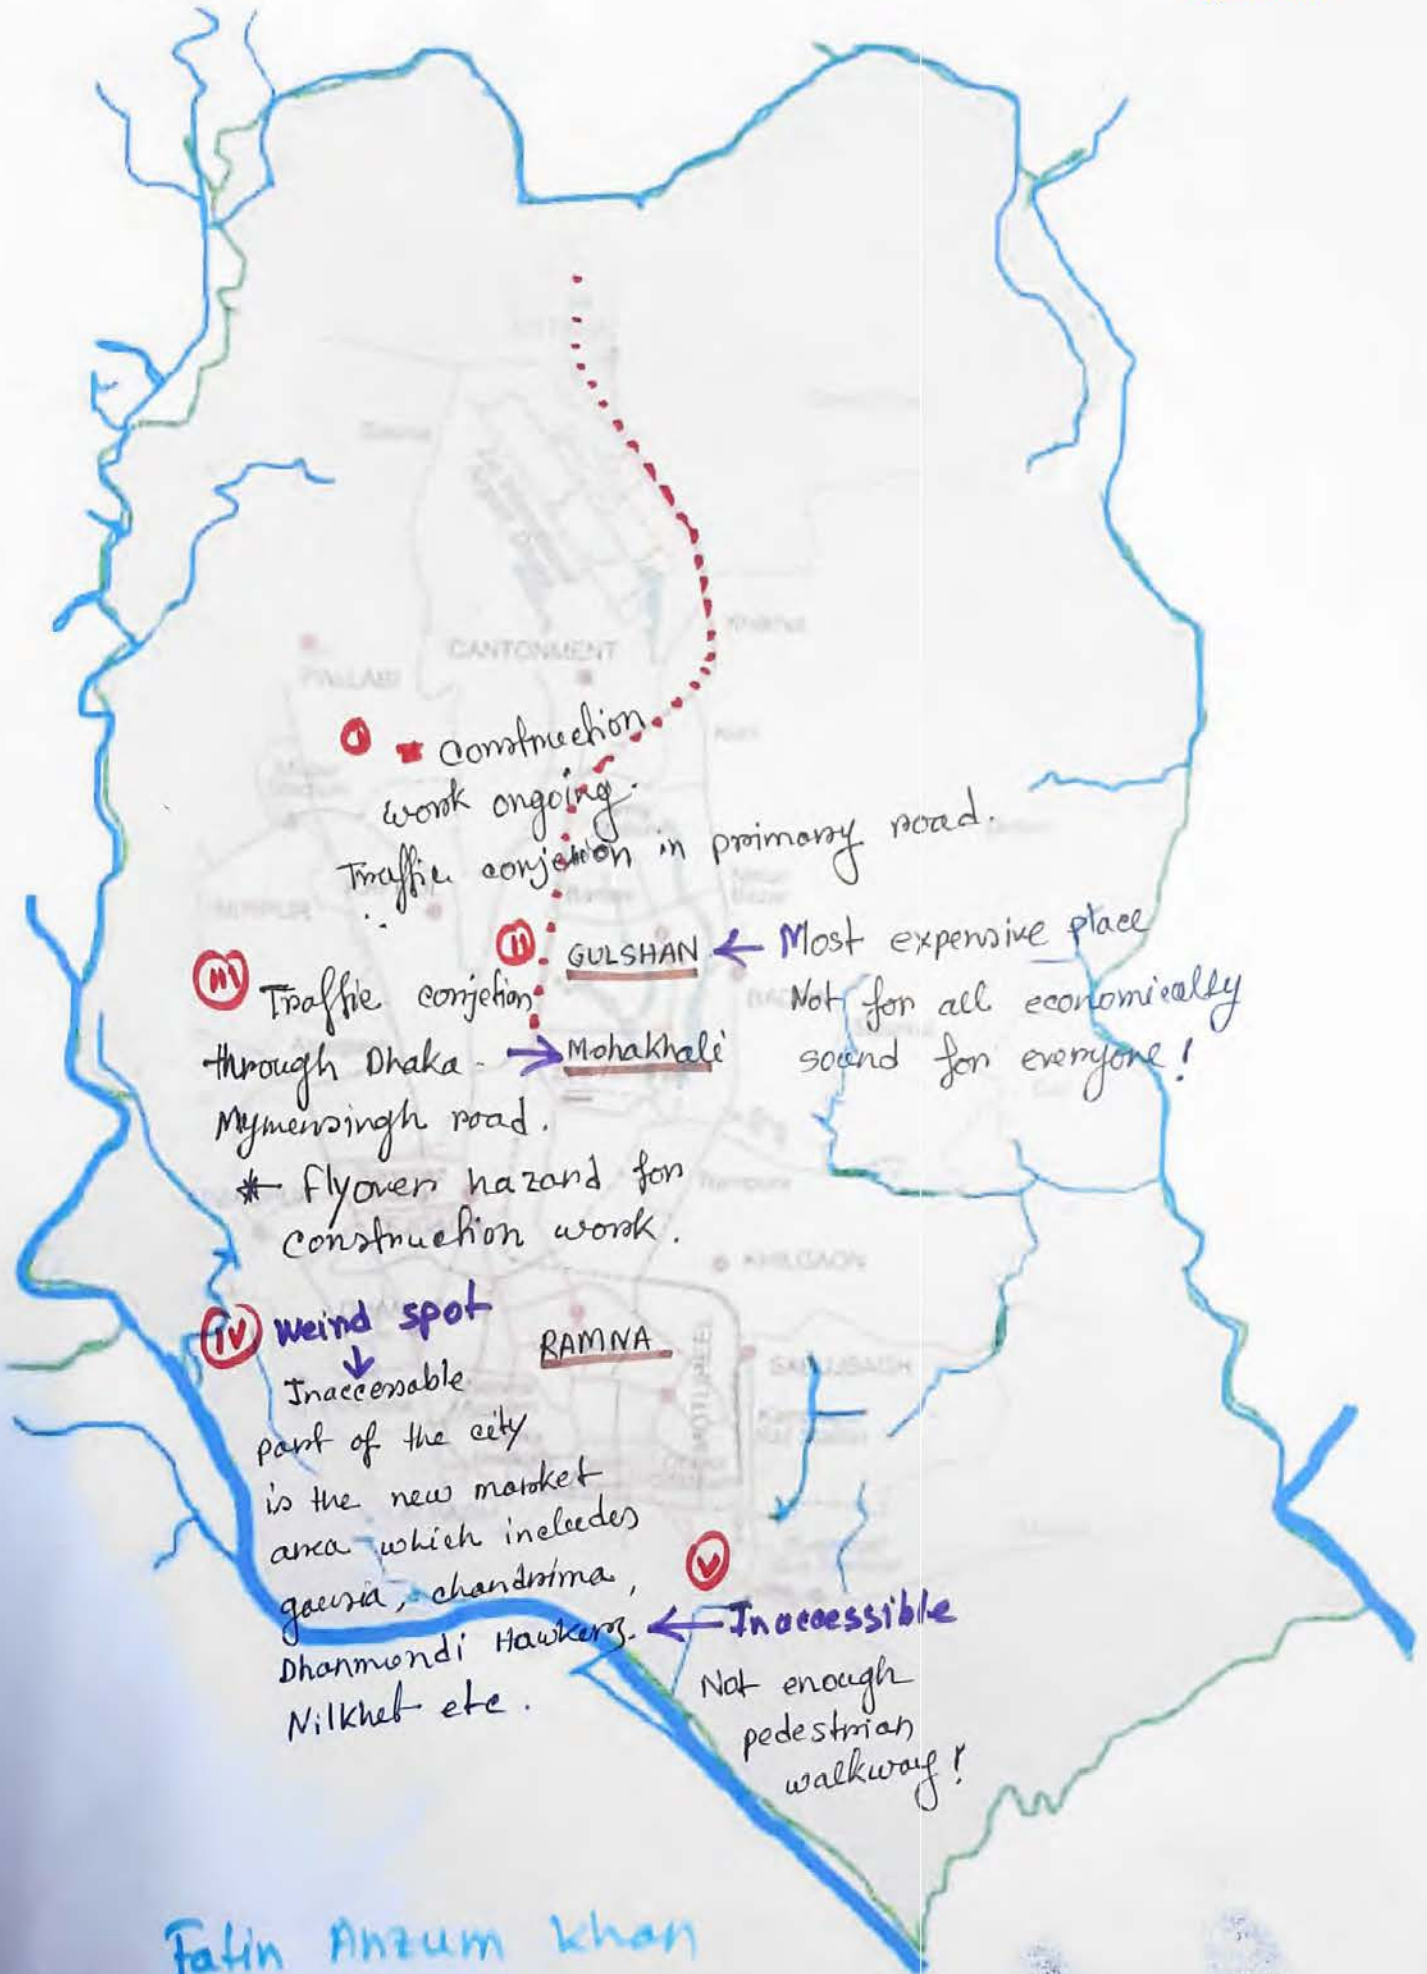 PALLABI
CANTONMENT
I Construction
work ongoing.
Traffic conjetion in primary road.
II GULSHAN ← Most expensive place
Not for all economically
sound for everyone!
III Traffic conjetion
through Dhaka - → Mohakhali
Mymensingh road.
* flyover hazard for
construction work.
KHILGAON
IV Weird spot
↓
Inaccessable
part of the city
is the new market
area which includes
gausia, chandrima,
Dhanmondi Hawkers.
Nilkhet etc.
RAMNA
MOTIJHEEL
SABUJBAGH
V
← Inaccessible
Not enough
pedestrian
walkway!
Fatin Anzum Khan